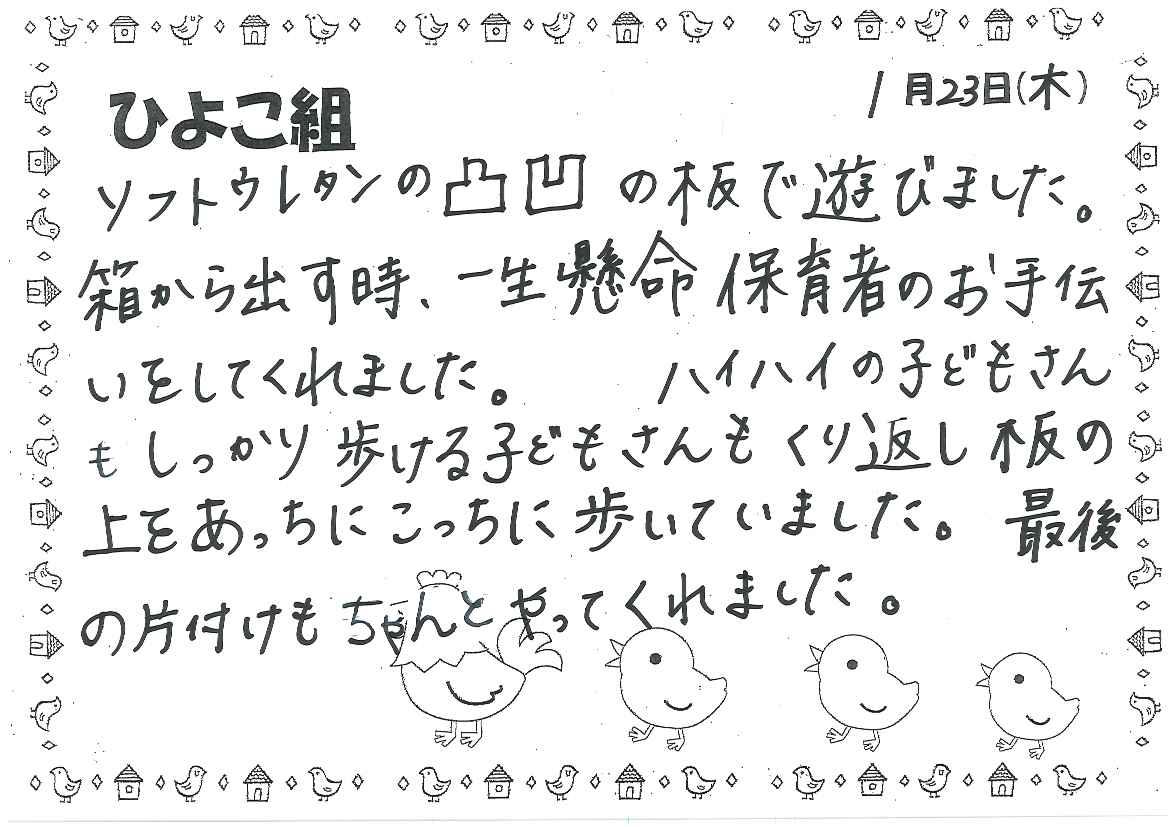 1月23日(木)
ひよこ組
ソフトウレタンの凸凹の板で遊びました。
箱から出す時、一生懸命保育者のお手伝
いをしてくれました。 ハイハイの子どもさん
もしっかり歩ける子どもさんもくり返し板の
上をあっちにこっちに歩いていました。最後
の片付けもちゃんとやってくれました。